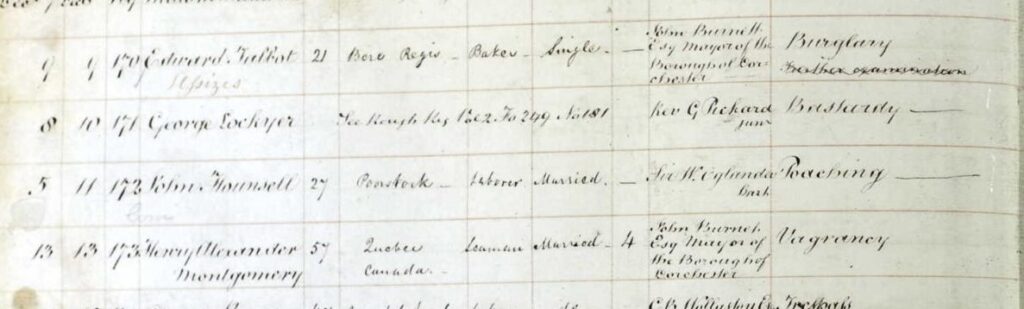 9 9 170 Edward Talbot 21 Bere Regis - Baker - Single - John Burnett Esq Mayor of the Borough of Dorchester Burglary
Further examination
Assizes
8 10 171 George Lockyer See Rough Reg Vol 2 Fo 249 No 181 Rev G Pickard junr Bastardy
5 11 172 John Hounsell 27 Poorstock - Labourer Married - Sir W. Oglander Bart Poaching
13 13 173 Henry Alexander Montgomery 57 Quebec Canada - Seaman Married - 4 John Burnett Esq Mayor of the Borough of Dorchester Vagrancy
Trespass